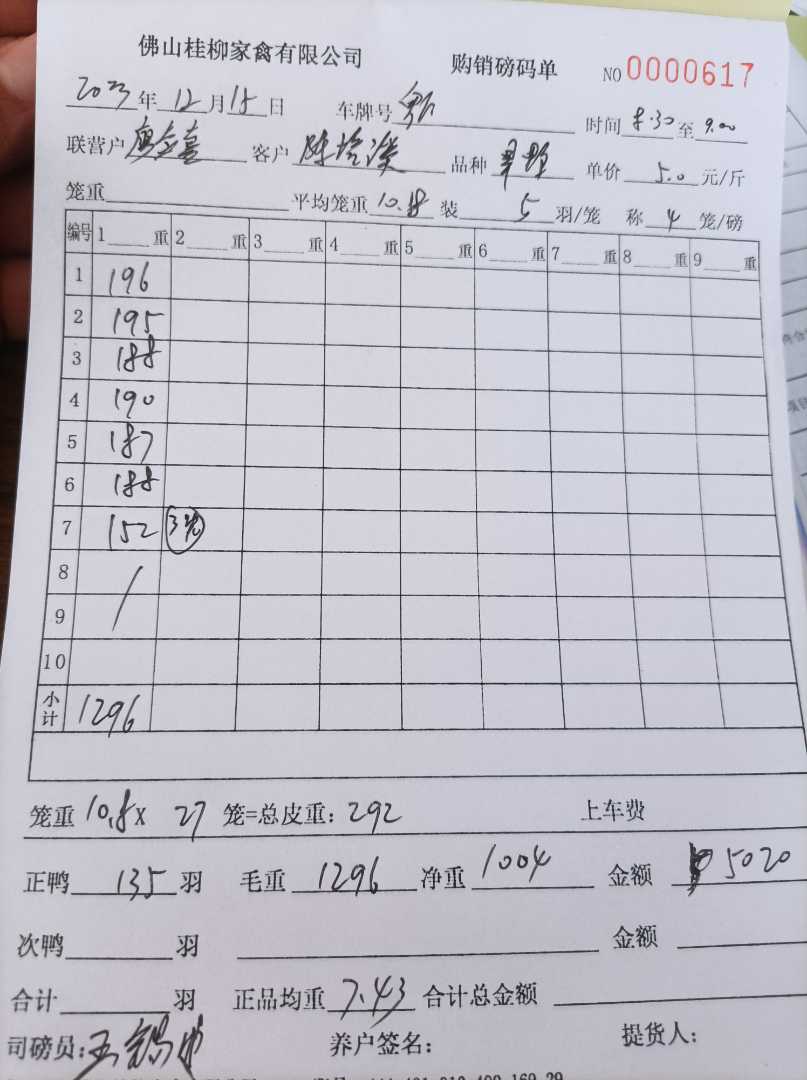 佛山桂柳家禽有限公司 购销磅码单 NO 0000617
2023年12月15日 车牌号 时间8.30至9.00
联营户 客户 品种 单价5.0元/斤
笼重 平均笼重10.8装5羽/笼 称4笼/磅
编号 1 重 2 重 3 重 4 重 5 重 6 重 7 重 8 重 9 重
1 196
2 195
3 188
4 190
5 187
6 188
7 152 3笼
8
9
10
小计 1296
笼重10.8×27笼=总皮重:292 上车费
正鸭135羽 毛重1296净重1004 金额5020
次鸭 羽 金额
合计 羽 正品均重7.43合计总金额
司磅员: 养户签名: 提货人: